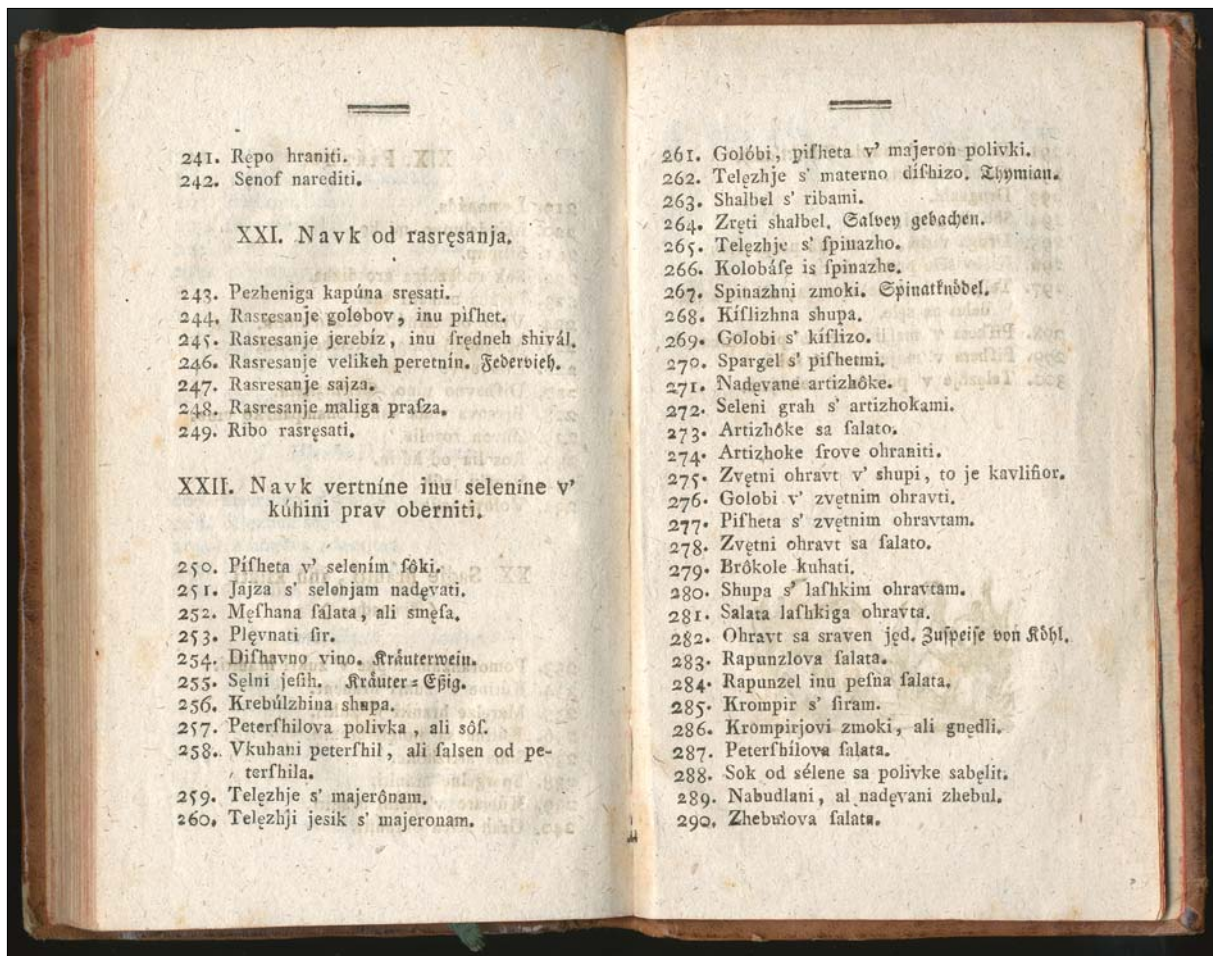 241. Rępo hraniti.
242. Senof narediti.
XXI. Navk od rasręsanja.
243. Pezheniga kapúna sręsati.
244. Rasresanje golobov, inu piſhet.
245. Rasresanje jerebíz, inu ſrędneh shivál.
246. Rasresanje velikeh peretnín. Federvieh.
247. Rasresanje sajza.
248. Rasresanje maliga praſza.
249. Ribo rasręsati.
XXII. Navk vertníne inu selenine v'
kúhini prav oberniti.
250. Píſheta v' selením ſôki.
251. Jajza s' selenjam nadęvati.
252. Męſhana ſalata, ali smęſa.
253. Plęvnati ſir.
254. Diſhavno vino. Kräuterwein.
255. Sęlni jeſih. Kräuter=Eßig.
256. Krebúlzhina shupa.
257. Peterſhilova polivka, ali sôſ.
258. Vkuhani peterſhil, ali ſalsen od pe-
terſhila.
259. Telęzhje s' majerônam.
260. Telęzhji jesik s' majeronam.
261. Golóbi, piſheta v' majeron polivki.
262. Telęzhje s' materno díſhizo. Thymian.
263. Shalbel s' ribami.
264. Zvręti shalbel. Salvey gebachen.
265. Telęzhje s' ſpinazho.
266. Kolobáſe is ſpinazhe.
267. Spinazhni zmoki. Spinatknödel.
268. Kíſlizhna shupa.
269. Golobi s' kíſlizo.
270. Spargel s' piſhetmi.
271. Nadęvane artizhôke.
272. Seleni grah s' artizhokami.
273. Artizhôke sa ſalato.
274. Artizhoke ſrove ohraniti.
275. Zvętni ohravt v' shupi, to je kavlifior.
276. Golobi v' zvętnim ohravti.
277. Piſheta s' zvętnim ohravtam.
278. Zvętni ohravt sa ſalato.
279. Brôkole kuhati.
280. Shupa s' laſhkim ohravtam.
281. Salata laſhkiga ohravta.
282. Ohravt sa sraven jęd. Zuſpeiſe von Köhl.
283. Rapunzlova ſalata.
284. Rapunzel inu peſna ſalata.
285. Krompir s' ſiram.
286. Krompirjovi zmoki, ali gnędli.
287. Peterſhílova ſalata.
288. Sok od sélene sa polivke sabęlit.
289. Nabudlani, al nadęvani zhebul.
290. Zhebulova ſalata.